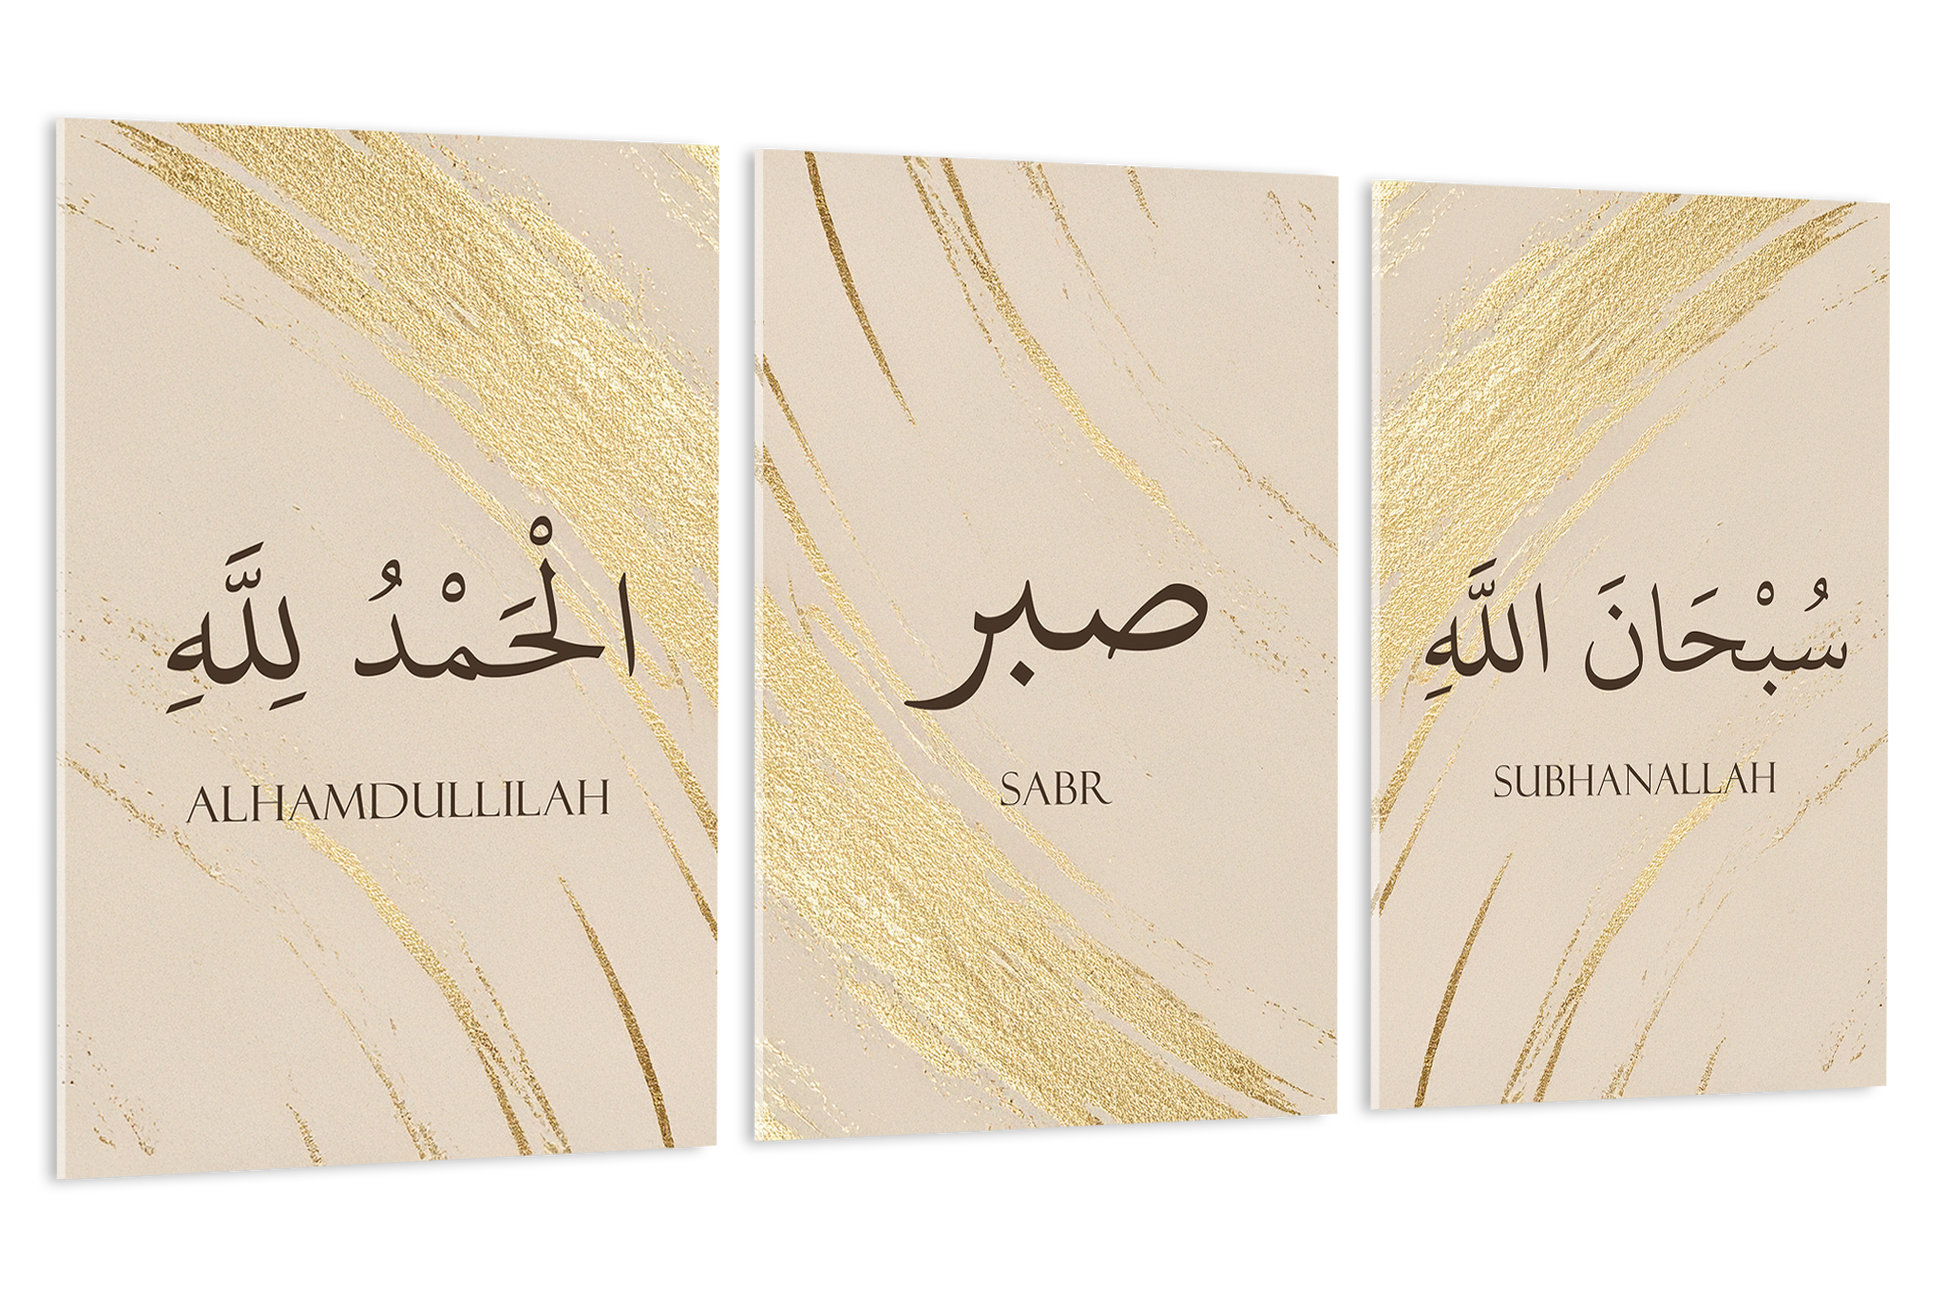 الْحَمْدُ لِلَّهِ
ALHAMDULLILAH
صبر
SABR
سُبْحَانَ اللَّهِ
SUBHANALLAH